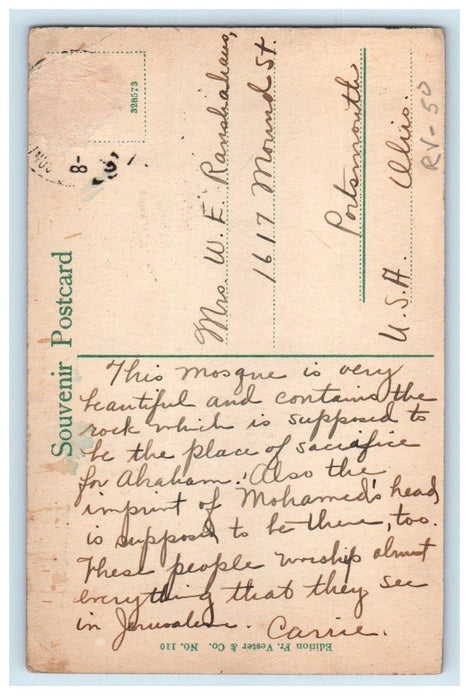 Souvenir Postcard
328573
8-
Mrs. W. E. Ranshahaus,
1617 Mound St.
Portsmouth
Ohio.
U.S.A.
RV-50
This mosque is very
beautiful and contains the
rock which is supposed to
be the place of sacrifice
for Abraham. Also the
imprint of Mohamed's head
is supposed to be there, too.
These people worship almost
everything that they see
in Jerusalem. Carrie.
Edition Fr. Vester & Co. No. 110